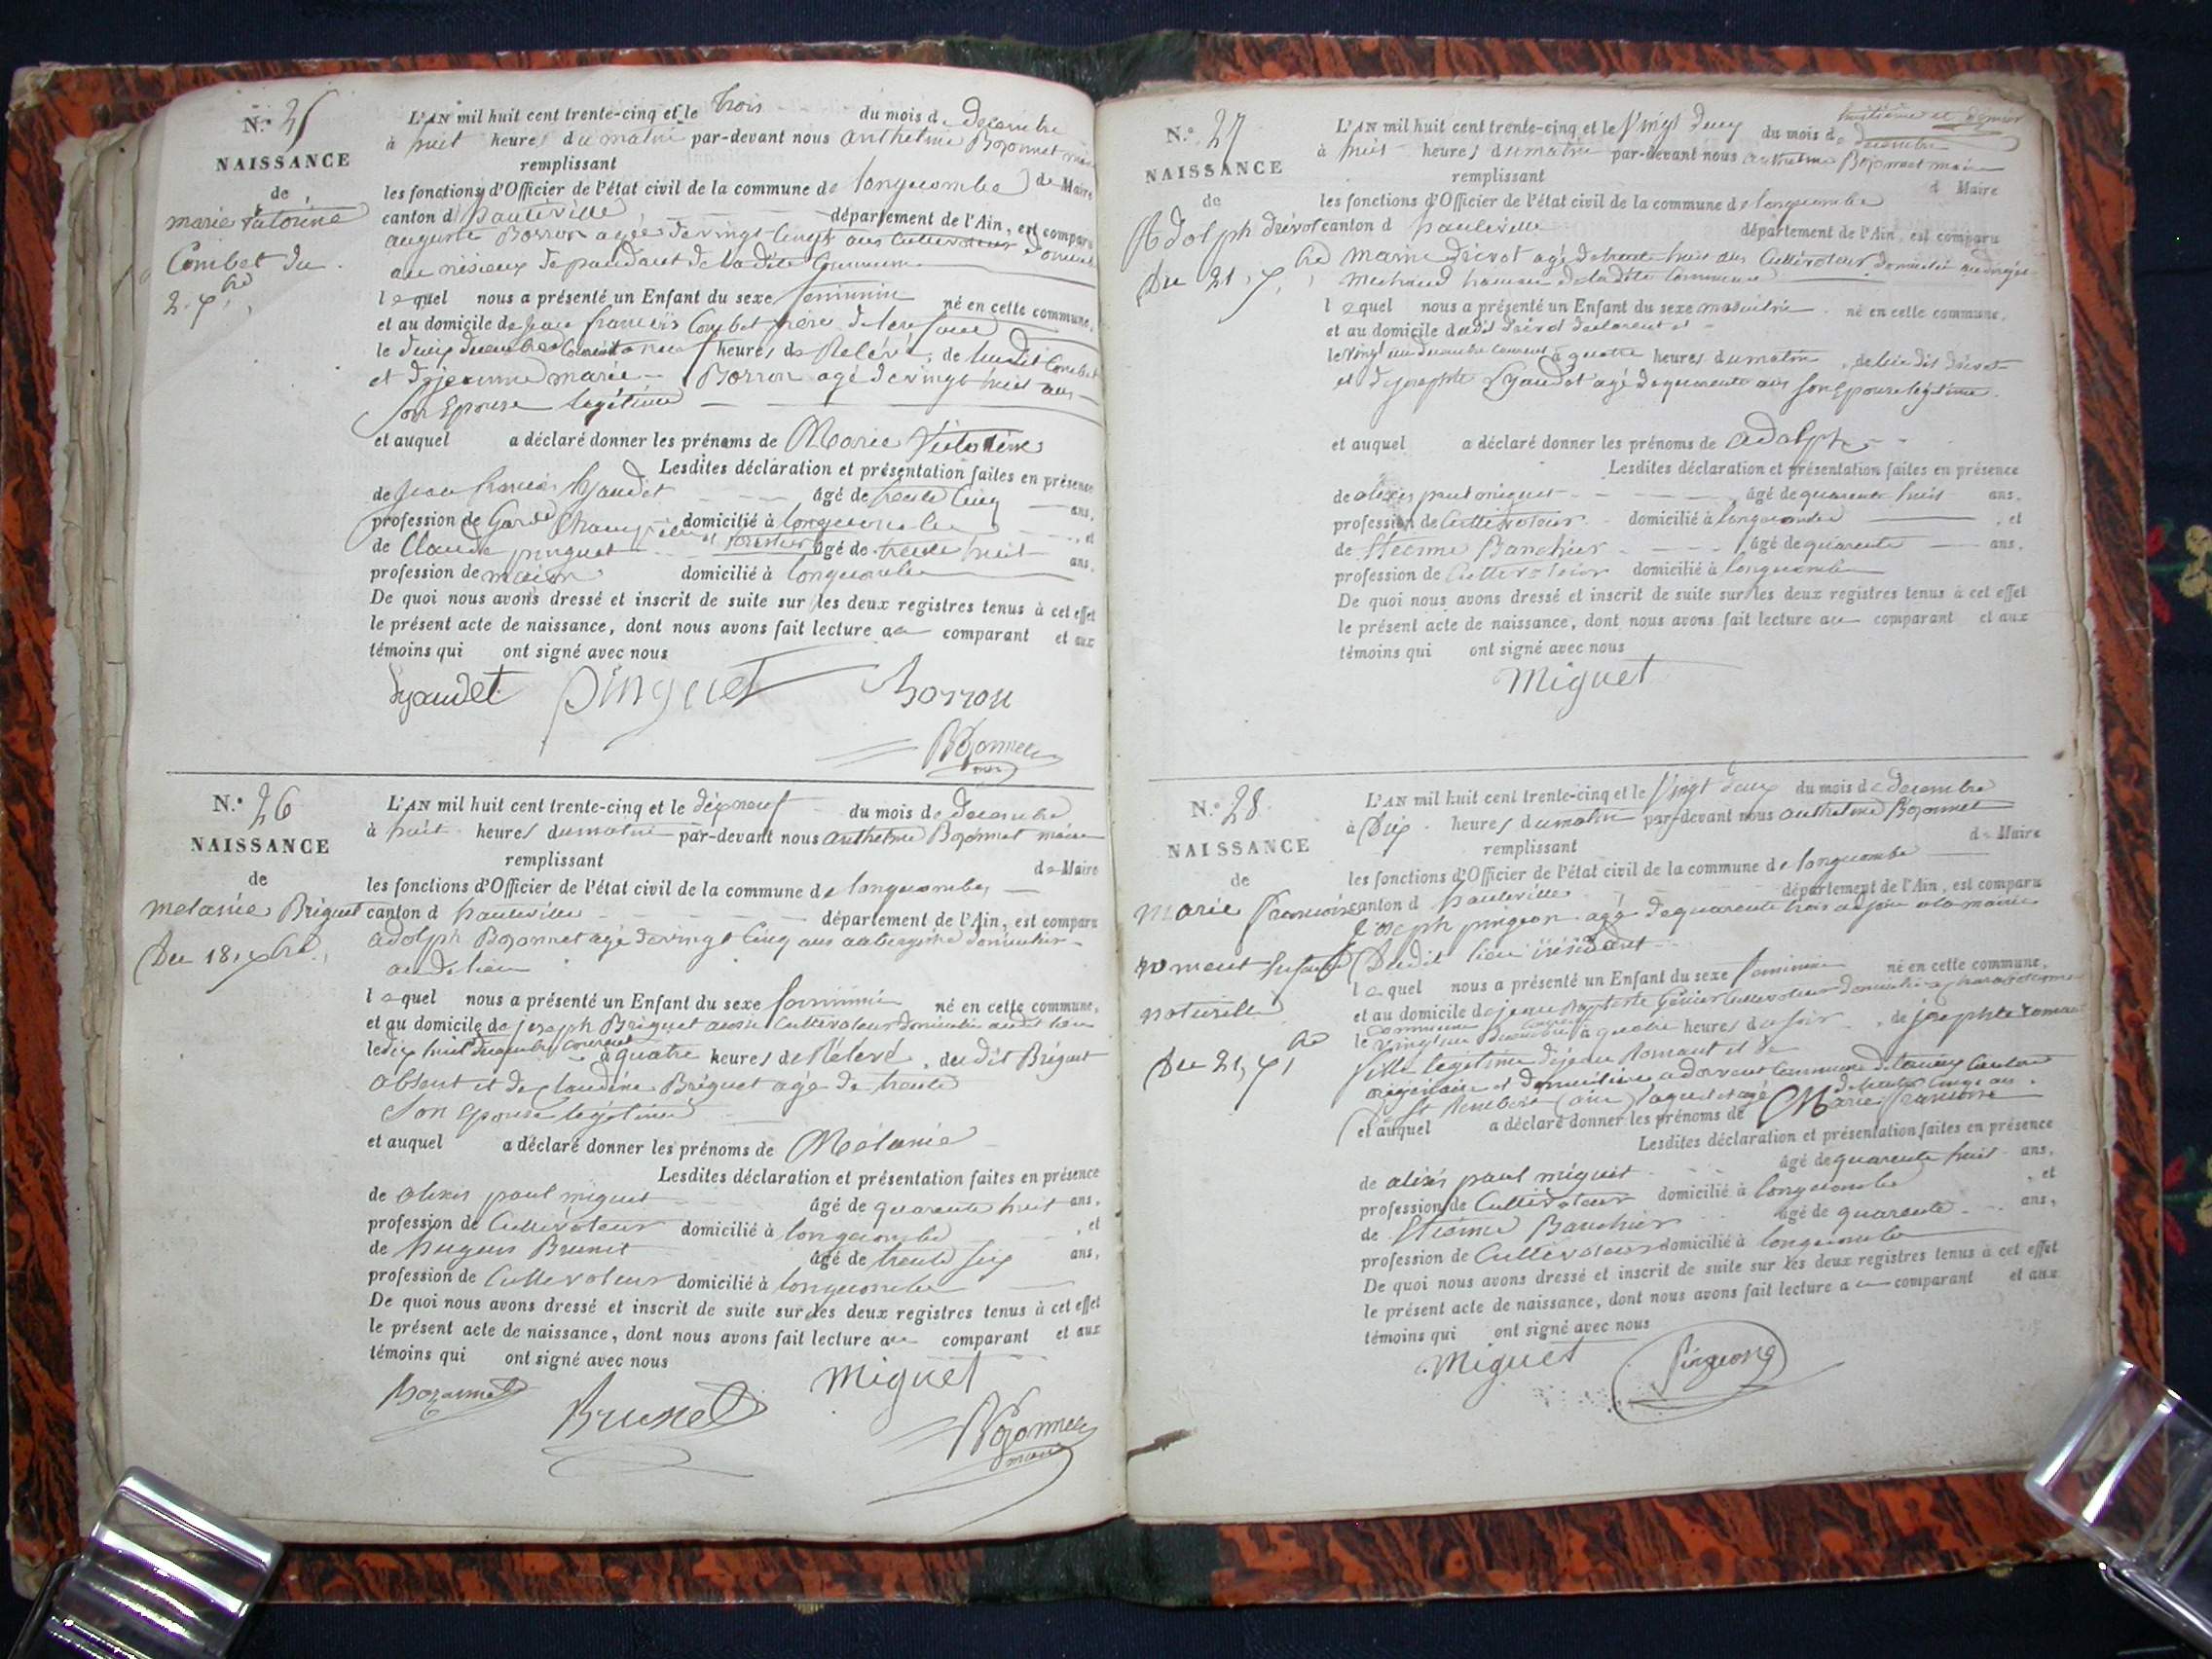 N.° 25
NAISSANCE
de
marie victorine
Combet du
2. Xbre
L'AN mil huit cent trente-cinq et le trois du mois de decembre
à huit heures du matin par-devant nous anthelme Bozonnet maire
remplissant
les fonctions d'Officier de l'état civil de la commune de longecombe de Maire
canton d hauteville département de l'Ain, est comparu
auguste Borron agé de vingt cinq ans Cultivateur
au de pandant de la dite Commune
lequel nous a présenté un Enfant du sexe feminin né en cette commune,
et au domicile de jean françois Combet père de
le deux decembre heures de Relevé, de dudit Combet
et de jeanne marie Borron agé de vingt huit ans
son Epouse legitime
et auquel a déclaré donner les prénoms de Marie Victorine
Lesdites déclaration et présentation faites en présence
de Jean Lyaudet âgé de trente cinq ans,
profession de Garde Champêtre et forestier domicilié à longecombe, et
de Claude pinguet âgé de trente huit ans,
profession de maçon domicilié à longecombe
De quoi nous avons dressé et inscrit de suite sur les deux registres tenus à cet effet
le présent acte de naissance, dont nous avons fait lecture au comparant et aux
témoins qui ont signé avec nous
Lyaudet pinguet Borron
Bozonnet
maire
N.° 26
NAISSANCE
de
melanie Briguet
Du 18, Xbre,
L'AN mil huit cent trente-cinq et le dix neuf du mois de decembre
à huit heures du matin par-devant nous anthelme Bozonnet maire
remplissant de Maire
les fonctions d'Officier de l'état civil de la commune de longecombe
canton d hauteville département de l'Ain, est comparu
adolph Bozonnet agé de vingt cinq ans aubergiste domicilier
au dit lieu
lequel nous a présenté un Enfant du sexe feminin né en cette commune,
et au domicile de joseph Briguet aussi Cultivateur domicilier audit lieu
le dix huit decembre courant à quatre heures de Relevé, du dit Briguet
absent et de Claudine Briguet agé de trente
son Epouse legitime
et auquel a déclaré donner les prénoms de Mélanie
Lesdites déclaration et présentation faites en présence
de alexis paul miguet âgé de quarante huit ans,
profession de Cultivateur domicilié à longecombe, et
de hugues Brunet âgé de trente six ans,
profession de Cultivateur domicilié à longecombe
De quoi nous avons dressé et inscrit de suite sur les deux registres tenus à cet effet
le présent acte de naissance, dont nous avons fait lecture au comparant et aux
témoins qui ont signé avec nous
Bozonnet Brunet miguet
Bozonnet
maire
huitième et dernier
N.° 27
NAISSANCE
de
Adolph drévot
Du 21, Xbre
L'AN mil huit cent trente-cinq et le Vingt deux du mois de decembre
à huit heures du matin par-devant nous anthelme Bozonnet maire
remplissant d Maire
les fonctions d'Officier de l'état civil de la commune de longecombe
canton d hauteville département de l'Ain, est comparu
drévot agé de trente huit ans Cultivateur domicilié
de la dite Commune
lequel nous a présenté un Enfant du sexe masculin né en cette commune,
et au domicile dudit drévot declarent
le vingt un decembre courant à quatre heures du matin, de lui dit drévot
et de josephte Lyaudet agé de quarante ans son Epouse legitime
et auquel a déclaré donner les prénoms de adolph
Lesdites déclaration et présentation faites en présence
de alexis paul miguet âgé de quarante huit ans,
profession de Cultivateur domicilié à longecombe, et
de Etienne Barchier âgé de quarante ans,
profession de Cultivateur domicilié à longecombe
De quoi nous avons dressé et inscrit de suite sur les deux registres tenus à cet effet
le présent acte de naissance, dont nous avons fait lecture au comparant et aux
témoins qui ont signé avec nous
Miguet
N.° 28
NAISSANCE
de
marie francoise
romant
naturelle
Du 21, Xbre
L'AN mil huit cent trente-cinq et le Vingt deux du mois de decembre
à dix heures du matin par-devant nous anthelme Bozonnet
remplissant de Maire
les fonctions d'Officier de l'état civil de la commune de longecombe
canton d hauteville département de l'Ain, est comparu
joseph pingeon agé de quarante trois adjoin a la mairie
Dudit lieu y résidant
lequel nous a présenté un Enfant du sexe feminin né en cette commune,
et au domicile de jean Baptiste Cultivateur domicilié
le vingt un decembre courant à quatre heures du soir, de josephte romant
fille legitime de jean Romant et de
originaire et domiciliée a dorvent Commune de
St Rembert (ain) laquelle agé de trente cinq ans
et auquel a déclaré donner les prénoms de Marie francoise
Lesdites déclaration et présentation faites en présence
de alexis paul miguet âgé de quarante huit ans,
profession de Cultivateur domicilié à longecombe, et
de Etienne Barchier âgé de quarante ans,
profession de Cultivateur domicilié à longecombe
De quoi nous avons dressé et inscrit de suite sur les deux registres tenus à cet effet
le présent acte de naissance, dont nous avons fait lecture au comparant et aux
témoins qui ont signé avec nous
Miguet Pingeon